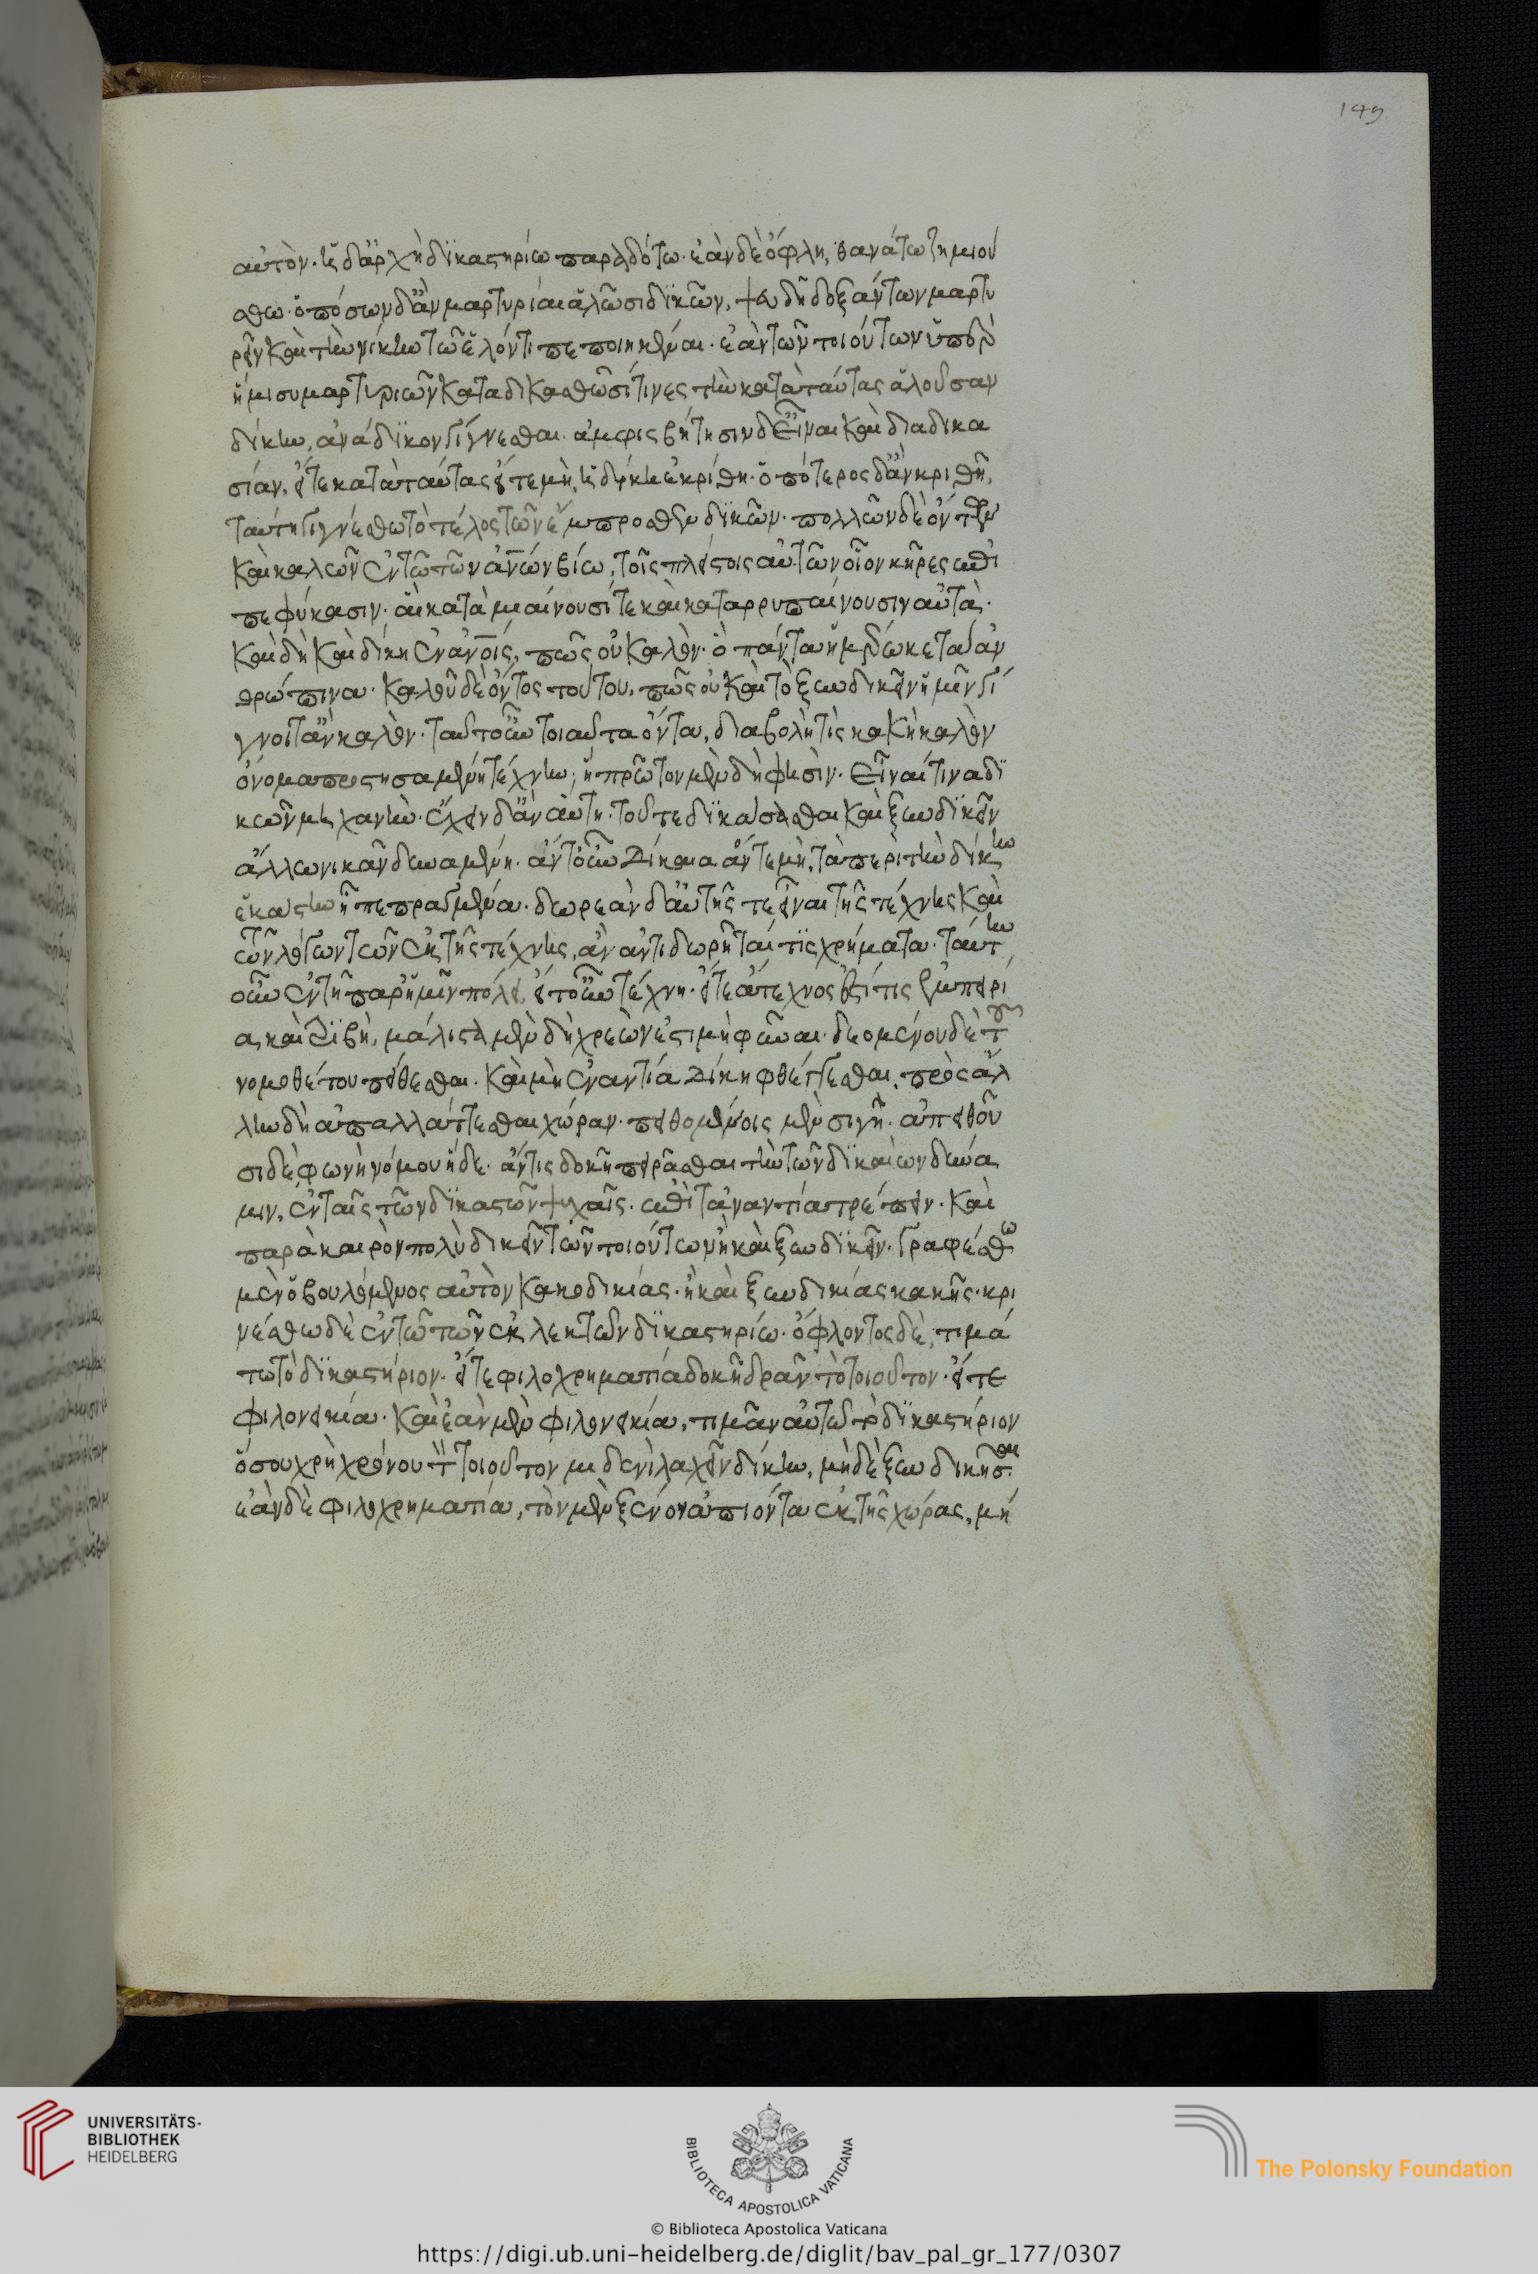 149
αὐτὸν· ἡ δ' ἀρχὴ δικαστηρίω παραδότω· ἐὰν δὲ ὄφλη, θανάτω ζημιού
σθω· ὁπόσων δ' ἂν μαρτυρίαι ἁλῶσι δικῶν, ψευδῆ δοξάντων μαρτυ
ρεῖν καὶ τὴν νίκην τῶ ἑλόντι πεποιηκέναι· ἐὰν τῶν τοιούτων ὑπὲρ
ἥμισυ μαρτυριῶν καταδικασθῶσί τινες τὴν κατὰ ταύτας ἁλοῦσαν
δίκην, ἀνάδικον γίγνεσθαι. ἀμφισβήτησιν δ' εἶναι καὶ διαδικα
σίαν, εἴτε κατὰ ταύτας εἴτε μὴ, ἡ δίκη ἐκρίθη· ὁποτέρως δ' ἂν κριθῆ,
ταύτη γιγνέσθω τὸ τέλος τῶν ἔμπροσθεν δικῶν· πολλῶν δὲ ὄντων
καὶ καλῶν ἐν τῶ τῶν ἀν̅ων βίω, τοῖς πλείστοις αὐτῶν οἷον κῆρες ἐπι
πεφύκασιν· αἳ καταμιαίνουσί τε καὶ καταρρυπαίνουσιν αὐτά·
καὶ δὴ καὶ δίκη ἐν ἀν̅οις, πῶς οὐ καλὸν· ὃ πάντα ἡμέρωκε τὰ ἀν
θρώπινα· καλοῦ δὲ ὄντος τούτου, πῶς οὐ καὶ τὸ ξυνδικεῖν ἡμῖν γί
γνοιτ' ἂν καλὸν· ταῦτ' οὖν τοιαῦτα ὄντα, διαβολή τις κακὴ καλὸν
ὄνομα προστησαμένη τέχνην, ἣ πρῶτον μὲν δή φησὶν· εἶναί τινα δι
κῶν μηχανὴν· εἶναι δ' ἂν αὐτὴ· τοῦ τε δικάσασθαι καὶ ξυνδικεῖν
ἄλλω νικᾶν δυναμένη· ἄν τ' οὖν δίκαια ἄν τε μὴ, τὰ περὶ τὴν δίκην
ἑκάστην ᾖ πεπραγμένα· δωρεὰν δ' αὐτῆς τε εἶναι τῆς τέχνης καὶ
τῶν λόγων τῶν ἐκ τῆς τέχνης, ἂν ἀντιδωρῆταί τις χρήματα· ταύτην
οὖν ἐν τῆ παρ' ἡμῖν πόλει, εἴτ' οὖν τέχνη· εἴτε ἄτεχνος ἐστί τις ἐμπειρί
α, καὶ τριβὴ, μάλιστα μὲν δὴ χρεὼν ἐστι μὴ φῦναι· δεομένου δὲ τοῦ
νομοθέτου πείθεσθαι· καὶ μὴ ἐναντία δίκη φθέγγεσθαι, πρὸς ἄλ
λην δὴ ἀπαλλάττεσθαι χώραν· πειθομένοις μὲν σιγῆ· ἀπειθοῦ
σι δὲ φωνὴ νόμου ἥδε· ἄν τις δοκῆ πειρᾶσθαι τὴν τῶν δικαίων δύνα
μιν, ἐν ταῖς τῶν δικαστῶν ψυχαῖς· ἐπὶ τἀναντία τρέπειν· καὶ
παρὰ καιρὸν πολὺ δικεῖν τῶν τοιούτων ἢ καὶ ξυνδικεῖν· γραφέσθω
μὲν ὁ βουλόμενος αὐτὸν κακοδικίας· ἢ καὶ ξυνδικίας κακῆς· κρι
νέσθω δὲ ἐν τῶ τῶν ἐκλεκτῶν δικαστηρίω· ὀφλόντος δὲ, τιμά
τω τὸ δικαστήριον· εἴτε φιλοχρηματία δοκῆ δρᾶν τὸ τοιοῦτον· εἴτε
φιλονεικία· καὶ ἐὰν μὲν φιλονεικία, τιμᾶν αὐτῶ τὸ δικαστήριον
ὅσου χρὴ χρόνου τὸν τοιοῦτον μηδενὶ λαχεῖν δίκην, μηδὲ ξυνδικῆσαι
ἐὰν δὲ φιλοχρηματία, τὸν μὲν ξένον ἀπιόντα ἐκ τῆς χώρας, μή
UNIVERSITÄTS-
BIBLIOTHEK
HEIDELBERG
BIBLIOTECA APOSTOLICA VATICANA
© Biblioteca Apostolica Vaticana
The Polonsky Foundation
https://digi.ub.uni-heidelberg.de/diglit/bav_pal_gr_177/0307